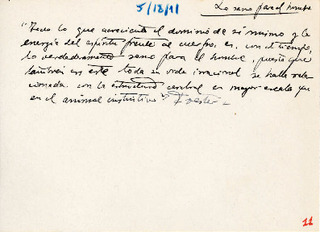 5/12/91
Lo sano para el hombre
"Todo lo que acreciente el dominio de sí mismo y la
energía del espíritu frente al cuerpo, es, con el tiempo,
lo verdaderamente sano para el hombre, puesto que
también en este toda su vida irracional se halla rela
cionada con la estructura cerebral en mayor escala que
en el animal instintivo"
11